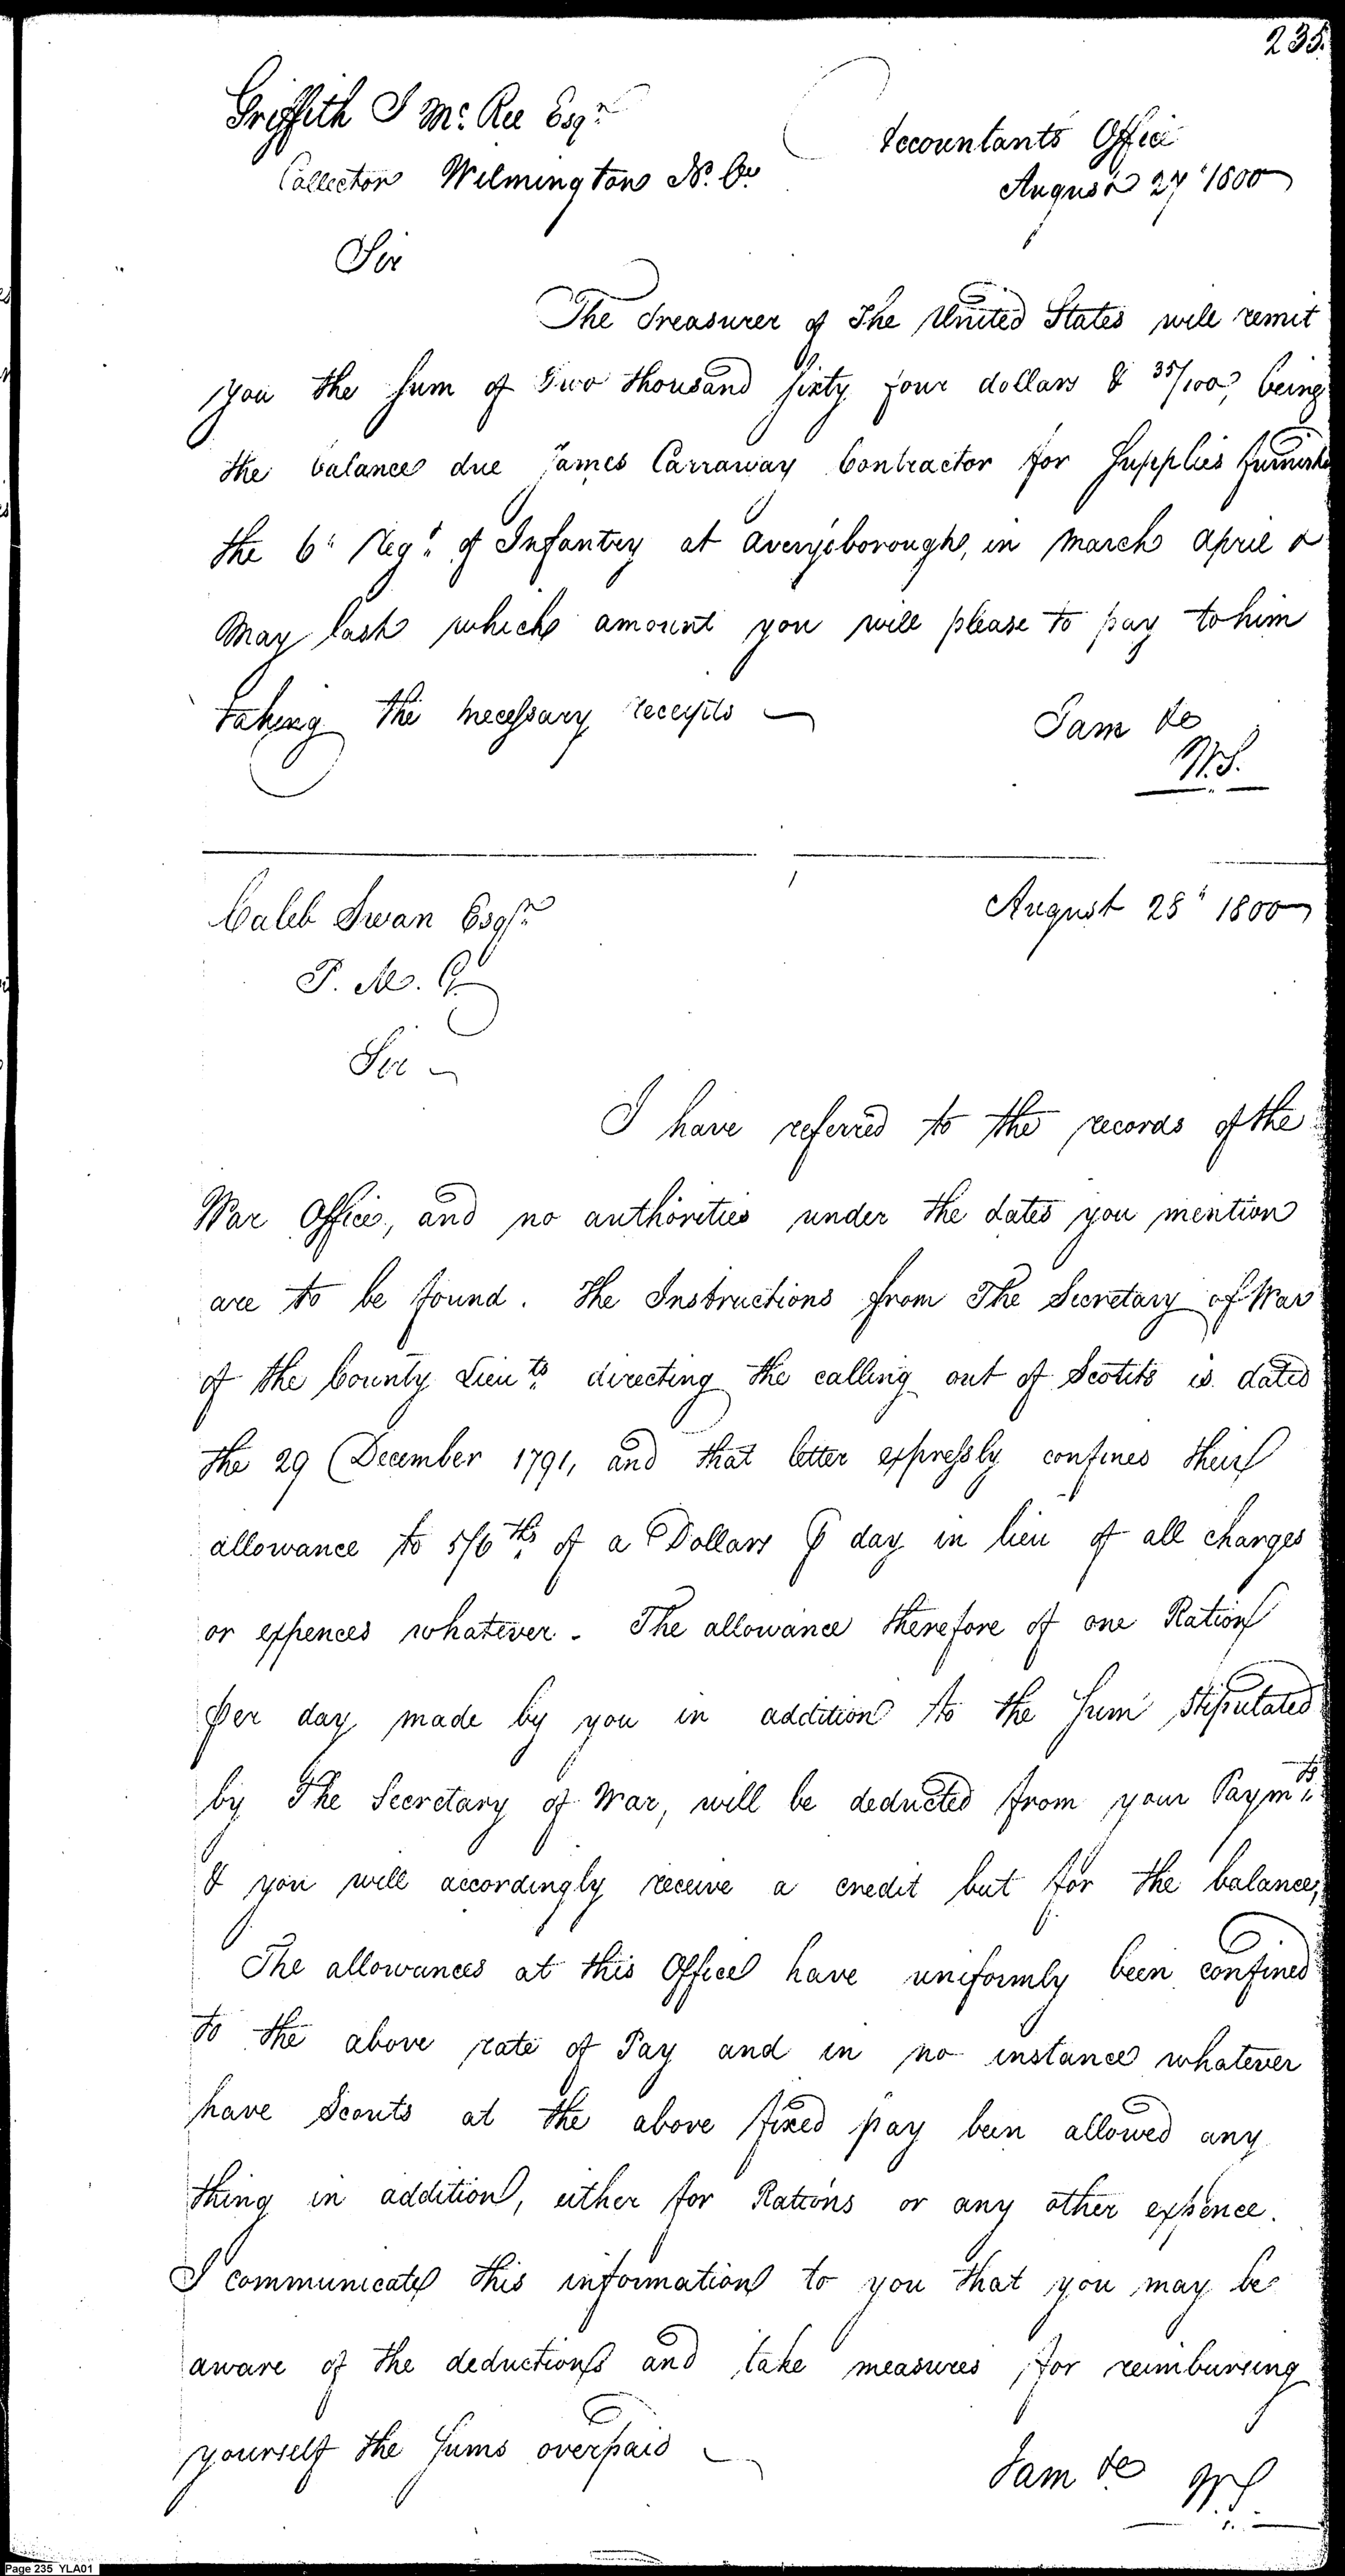 235.
Griffith J McRee Esqr
Accountants Office
Collector Wilmington N. Ca
August 27th 1800
Sir
The Treasurer of The United States will remit
you the sum of Two thousand sixty four dollars & 35/100, being
the balance due James Carraway Contractor for Supplies furnish
the 6th Regt of Infantry at Averysborough, in March April &
May last which amount you will please to pay to him
taking the necessary receipts
I am &c
W.S.
Caleb Swan Esqr
August 28th 1800
P. M. G.
Sir
I have referred to the records of the
War Office, and no authorities under the dates you mention
are to be found. The Instructions from The Secretary of War
of the County Lieuts directing the calling out of Scotits is dated
the 29 December 1791, and that letter expressly confines their
allowance to 5/6ths of a Dollar ⅌ day in lieu of all charges
or expences whatever. The allowance therefore of one Ration
per day made by you in addition to the Sum stipulated
by The Secretary of War, will be deducted from your Paymts
& you will accordingly receive a credit but for the balance,
The allowances at this Office have uniformly been confined
to the above rate of Pay and in no instance whatever
have Scouts at the above fixed pay been allowed any
thing in addition, either for Rations or any other expence.
I communicate this information to you that you may be
aware of the deductions and take measures for reimbursing
yourself the Sums overpaid
I am &c WS
Page 235 YLA01